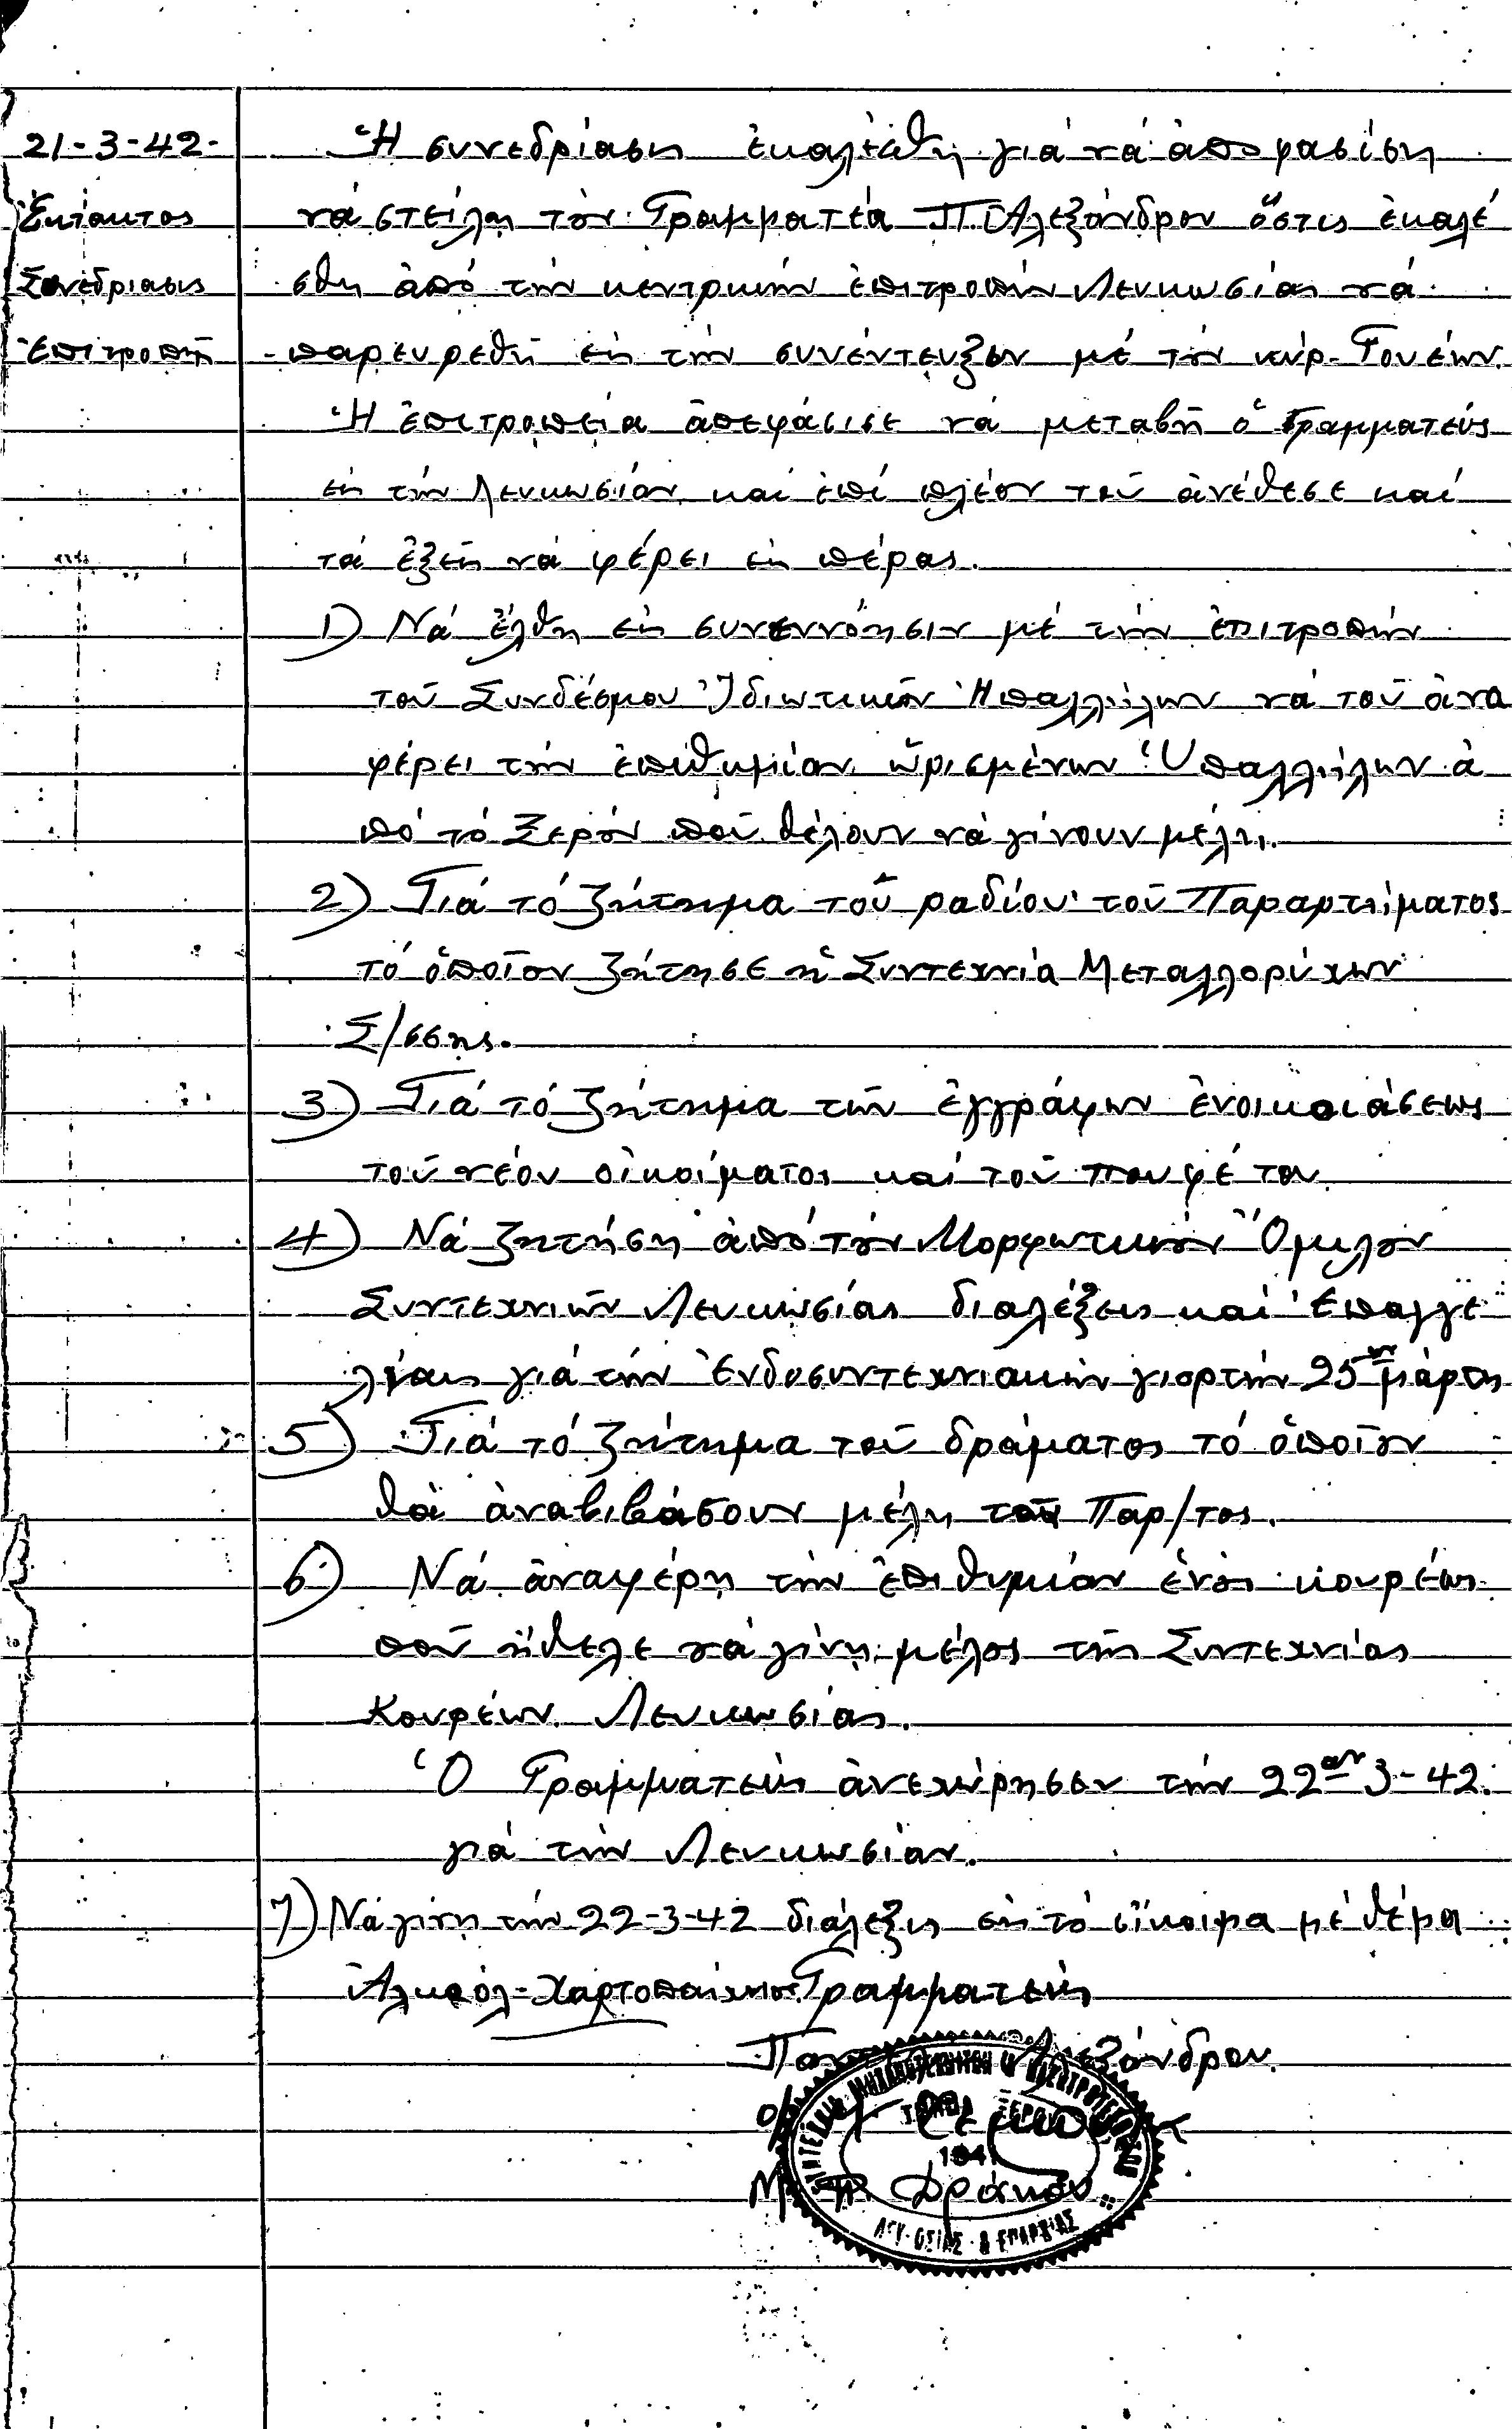 21-3-42.
Ἔκτακτος
Συνεδρίασις
Ἐπιτροπῆ
Ἡ συνεδρίασις ἐκαλέσθη γιά νά ἀποφασίση
νά στείλη τόν Γραμματέα Π. Ἀλεξάνδρου ὅστις ἐκαλέ
σθη ἀπό τήν κεντρικήν ἐπιτροπήν Λευκωσίας νά
παρευρεθῆ εἰς τήν συνέντευξιν μέ τόν κύρ.
Ἡ ἐπιτροπεία ἀπεφάσισε νά μεταβῆ ὁ Γραμματεύς
εἰς τήν Λευκωσίαν καί ἐπί πλέον τοῦ ἀνέθεσε καί
τά ἑξῆς νά φέρει εἰς πέρας.
1) Νά ἔλθη εἰς συνεννόησιν μέ τήν ἐπιτροπήν
τοῦ Συνδέσμου Ἰδιωτικῶν Ηπαλλήλων νά τοῦ ἀνα
φέρει τήν ἐπιθυμίαν ὡρισμένων Ὑπαλλήλων ἀ
πό τό Ξερόν ποῦ θέλουν νά γίνουν μέλη.
2) Γιά τό ζήτημα τοῦ ραδίου τοῦ Παραρτήματος
τό ὁποῖον ζήτησε ἡ Συντεχνία Μεταλλορύχων
Σ/σσης.
3) Γιά τό ζήτημα τῶν ἐγγράφων ἐνοικοιάσεως
τοῦ νέου οἰκοίματος καί τοῦ πουφέ του.
4) Νά ζητήση ἀπό τόν Μορφωτικόν Ὅμιλον
Συντεχνιῶν Λευκωσίας διαλέξεις καί Ἐπαγγε
λίαις γιά τήν Ἐνδοσυντεχνιακήν γιορτήν 25ην μάρτη
5) Γιά τό ζήτημα τοῦ δράματος τό ὁποῖον
θά ἀναβιβάσουν μέλη τοῦ Παρ/τος.
6) Νά ἀναφέρη τήν ἐπιθυμίαν ἑνός κουρέως
ποῦ ἤθελε νά γίνη μέλος τῆς Συντεχνίας
Κουρέων Λευκωσίας.
Ὁ Γραμματεύς ἀνεχώρησεν τήν 22αν 3-42.
γιά τήν Λευκωσίαν.
7) Νά γίνη τήν 22-3-42 διάλεξις εἰς τό οἴκοιμα μέ θέμα
Ἀλκοόλ-Χαρτοπαίχνιον. Γραμματεύς
Ἀλεξάνδρου.
ΞΕΡΟΥ
194
Μ. Δράκου
& ΕΠΑΡΧΙΑΣ